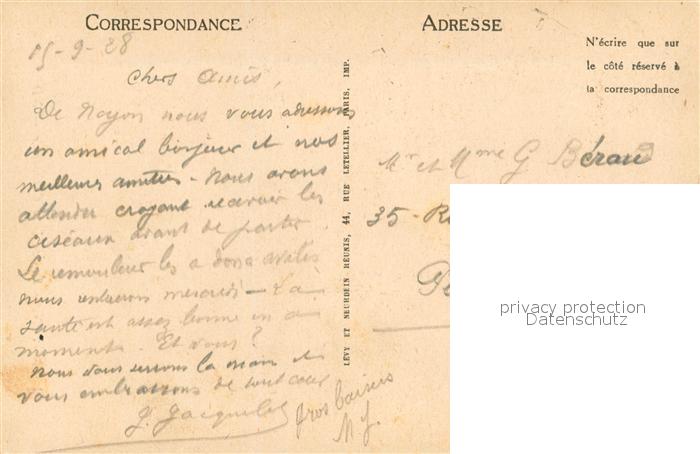 CORRESPONDANCE
15-9-28
Chers Amis,
De Noyon nous vous adressons
un amical bonjour et nos
meilleures amitiés - Nous avons
attendu croyant recevoir les
ciseaux avant de partir.
Le remouleur les a donc avalés
nous rentrerons mercredi - La
santé est assez bonne en ce
moment. Et vous ?
Nous vous serrons la main et
vous embrassons de tout coeur
J. Jacquelet
Gros baisers
M J.
LÉVY ET NEURDEIN RÉUNIS, 44, RUE LETELLIER, PARIS, IMP.
ADRESSE
N'écrire que sur
le côté réservé à
la correspondance
Mr et Mme G Béraud
35 - R
privacy protection
Datenschutz